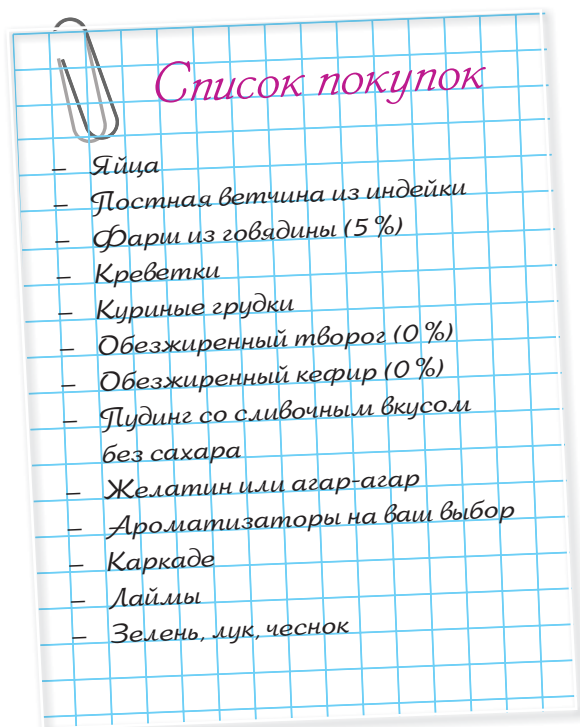 Список покупок
– Яйца
– Постная ветчина из индейки
– Фарш из говядины (5 %)
– Креветки
– Куриные грудки
– Обезжиренный творог (0 %)
– Обезжиренный кефир (0 %)
– Пудинг со сливочным вкусом
без сахара
– Желатин или агар-агар
– Ароматизаторы на ваш выбор
– Каркаде
– Лаймы
– Зелень, лук, чеснок